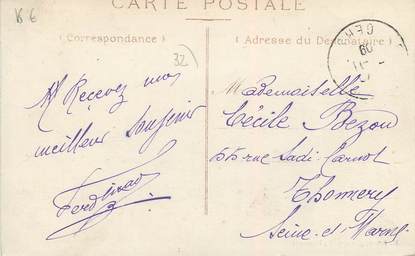 K 6
CARTE POSTALE
32
(Correspondance)
(Adresse du Destinataire)
Recevez mon
meilleur Souvenir
Ferdinand
Mademoiselle
Cécile Bezou
55 rue Sadi-Carnot
Thomery
Seine-et-Marne